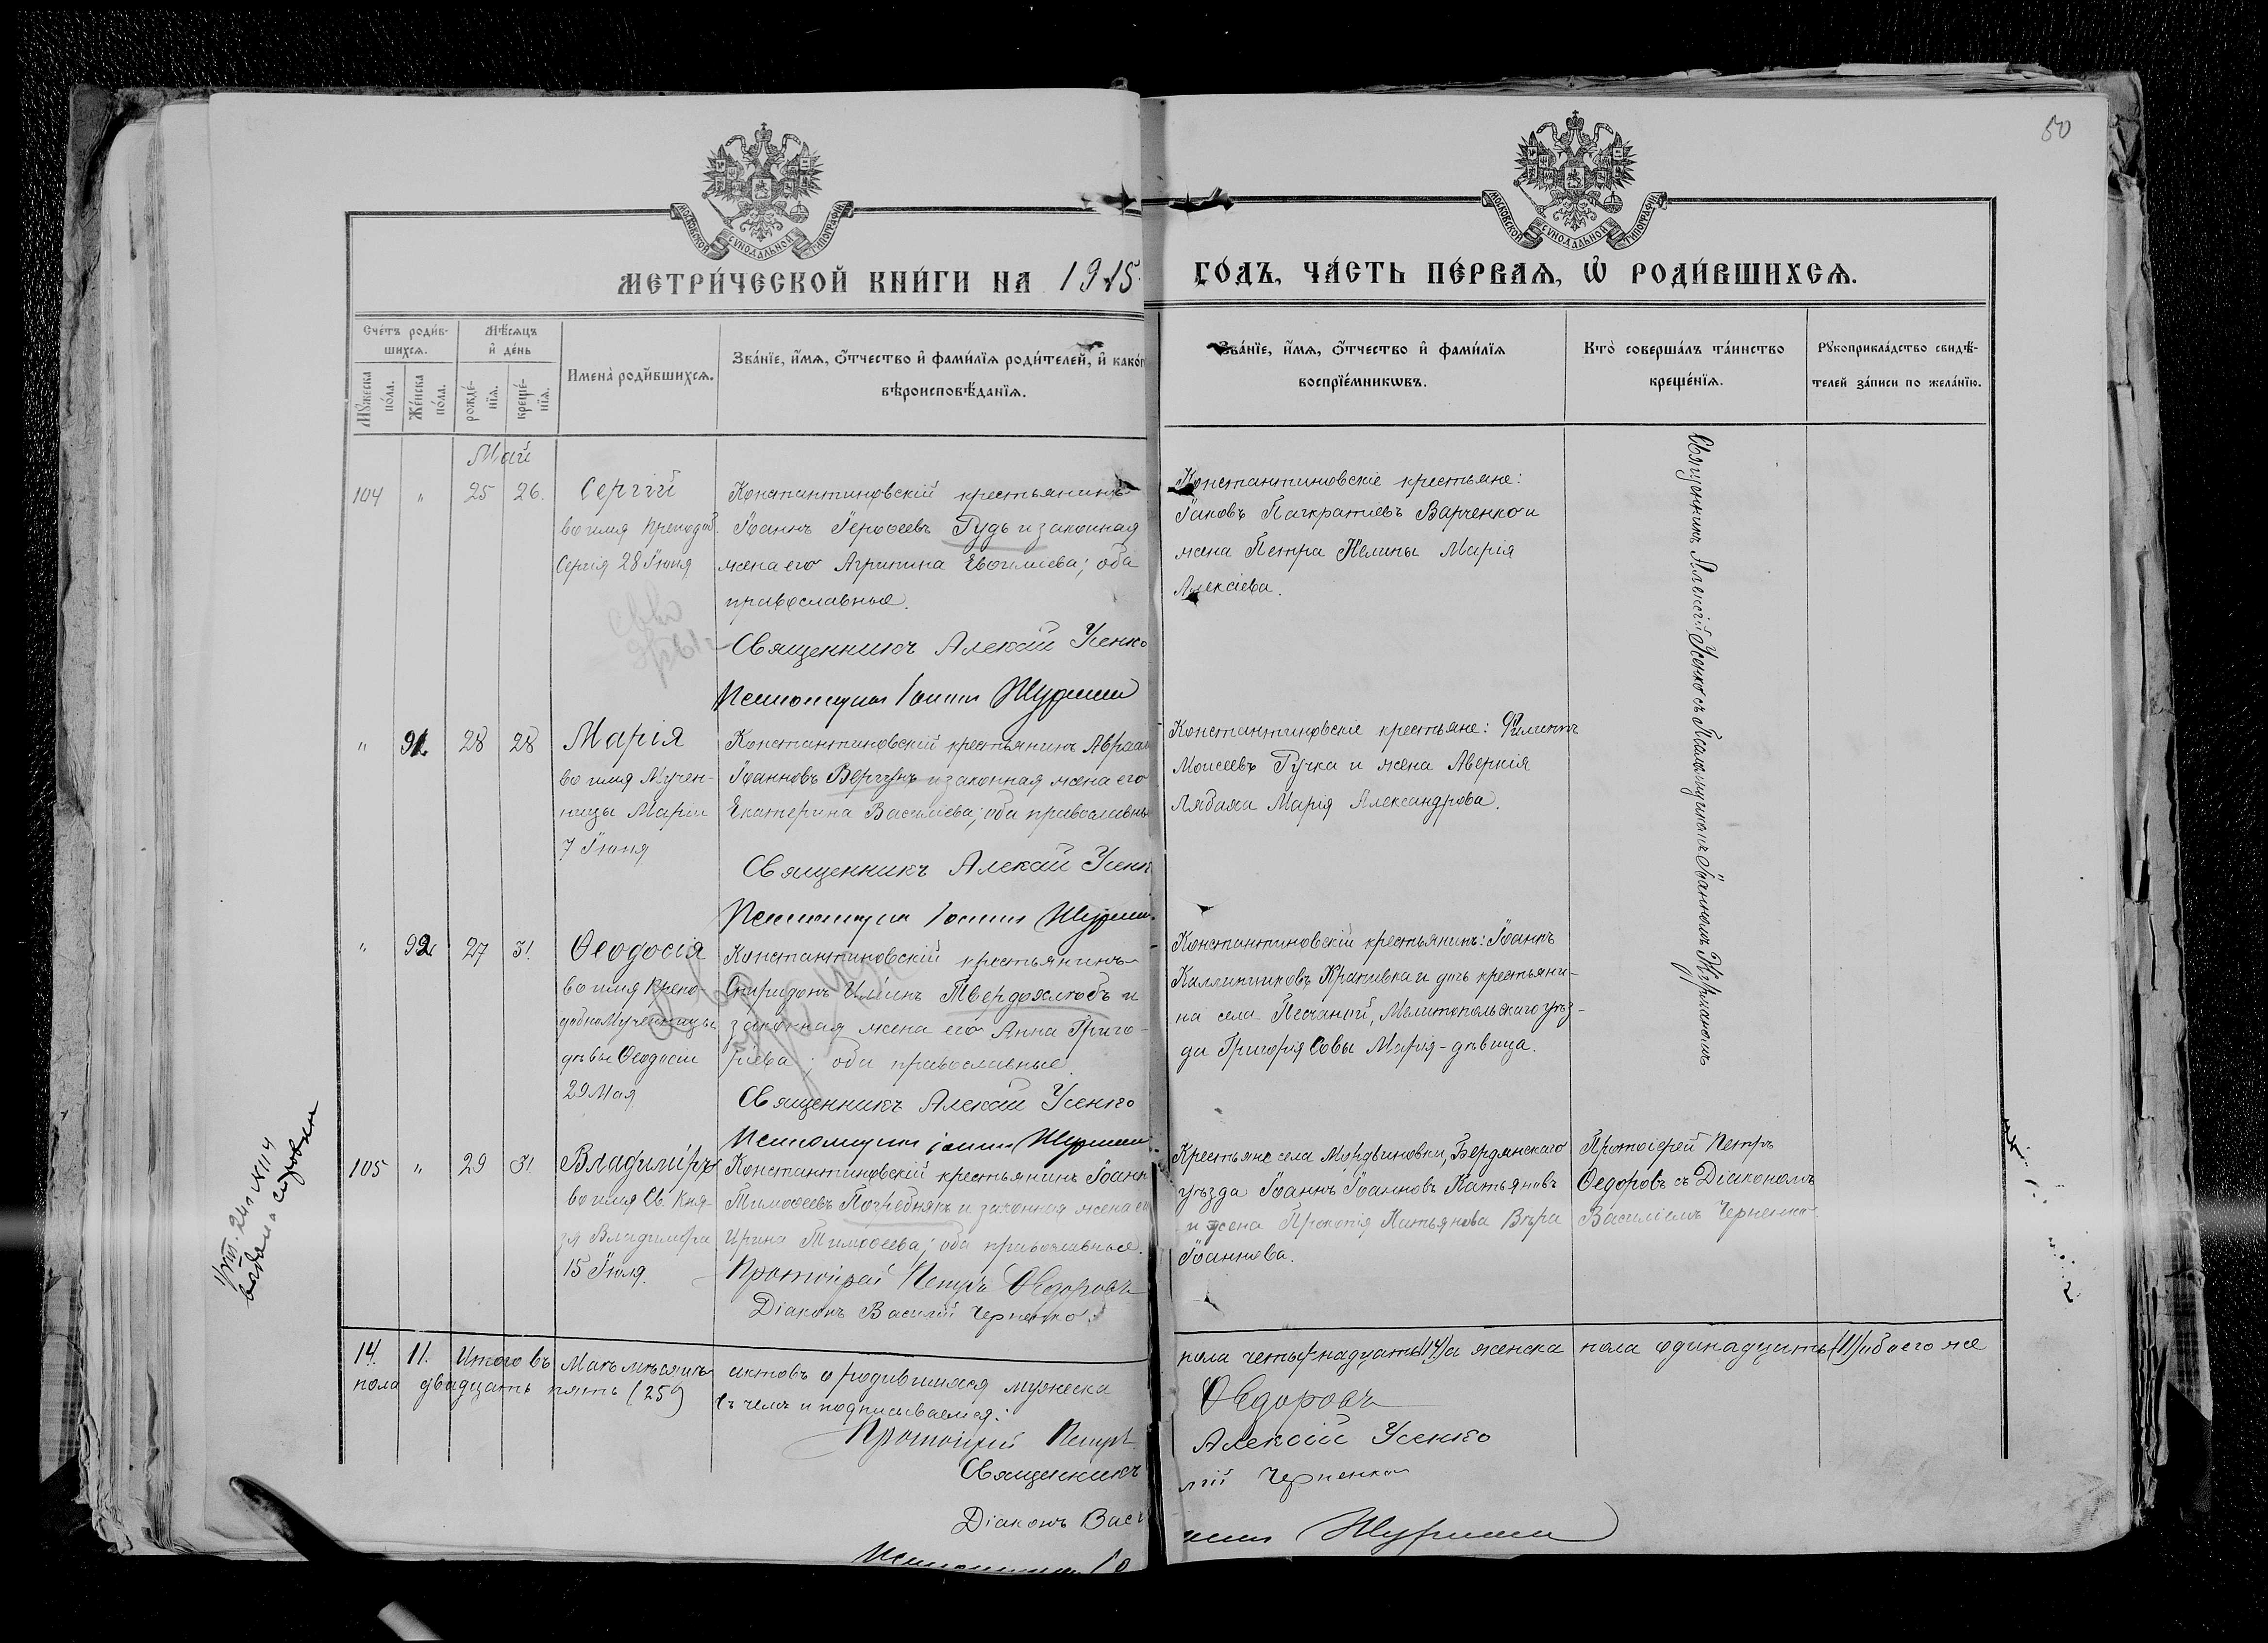 50
МОСКОВСКОЙ СУНОДАЛЬНОЙ ТИПОГРАФІИ
МОСКОВСКОЙ СУНОДАЛЬНОЙ ТИПОГРАФІИ
МЕТРИ́ЧЕСКОЙ КНИ́ГИ НА 1915
ГО́ДЪ, ЧА́СТЬ ПЕ́РВАѦ, Ѡ҆ РОДИ́ВШИХСѦ.
Сче́тъ роди́в-
шихсѧ.
Мꙋ́жеска по́ла.
Же́нска по́ла.
Мѣ́сѧцъ
и҆ де́нь
рожде́-
нїѧ.
креще́-
нїѧ.
И҆мена̀ роди́вшихсѧ.
Зва́нїе, и҆́мѧ, ѻ҆́тчество и҆ фамı́лїѧ роди́телей, и҆ како́г
вѣроисповѣ́данїѧ.
Зва́нїе, и҆́мѧ, ѻ҆́тчество и҆ фамı́лїѧ
воспрїе́мникѡвъ.
Кто̀ соверша́лъ та́инство
креще́нїѧ.
Рꙋкоприкла́дство свидѣ́-
телей за́писи по жела́нїю.
Май
104 " 25 26. Сергій
во имя Преподоб.
Сергія 28 Іюня
Константиновскій крестьянинъ
Іоаннъ Іеровеевъ Гудь и законная
жена его Агрипина Евѳиміева; оба
православные.
Священникъ Алексій Усенко
Псаломщикъ Іоаннъ
Константиновскіе крестьяне:
Іаковъ Панкратіевъ Варченко и
жена Петра Нелипы Марія
Алексіева.
Священникъ Алексій Усенко съ Псаломщикомъ Іоанномъ
" 91 28 28 Марія
во имя Мучен-
ницы Маріи
7 Іюня
Константиновскій крестьянинъ Авраам
Іоанновъ Вергунъ и законная жена его
Екатерина Василіева; оба православны
Священникъ Алексій Усенк
Псаломщикъ Іоаннъ
Константиновскіе крестьяне: Филиппъ
Моисеевъ Гучка и жена Аверкія
Лябаха Марія Александрова.
" 92 27 31. Ѳеодосія
во имя Препо-
добно Мученницы
дѣвы Ѳеодосіи
29 Мая
Константиновскій крестьянинъ
Спиридонъ Ильинъ Твердохлѣбъ и
законная жена его Анна Григо-
ріева; оба православные.
Священникъ Алексій Усенко
Псаломщикъ Іоаннъ
Константиновскій крестьянинъ: Іоаннъ
Каллинниковъ Крапивка и дочь крестьяни-
на села Песчаной, Мелитопольскаго уѣз-
да Григорія Совы Марія - дѣвица.
105 " 29 31 Владиміръ
во имя Св. Кня-
зя Владиміра
15 Іюля.
Константиновскій крестьянинъ Іоанн
Тимоѳеевъ Погребнякъ и законная жена ег
Ирина Тимоѳеева; оба православные.
Протоіерей Петръ Ѳедоровъ
Діаконъ Василій Черненко
Крестьяне села Мордвиновки, Бердянскаго
уѣзда Іоаннъ Іоанновъ Катьяновъ
и жена Прокопія Катьянова Вѣра
Іоаннова.
Протоіерей Петръ
Ѳедоровъ съ Діакономъ
Василіемъ Черненко
14. 11. Итого въ Маѣ мѣсяцѣ актовъ о родившихся мужеска
пола четырнадцать (14) а женска пола одинадцать (11) обоего же
пола двадцать пять (25)
въ чемъ и подписываемся:
Протоіерей Петръ Ѳедоровъ
Священникъ Алексій Усенко
Діаконъ Василій Черненко